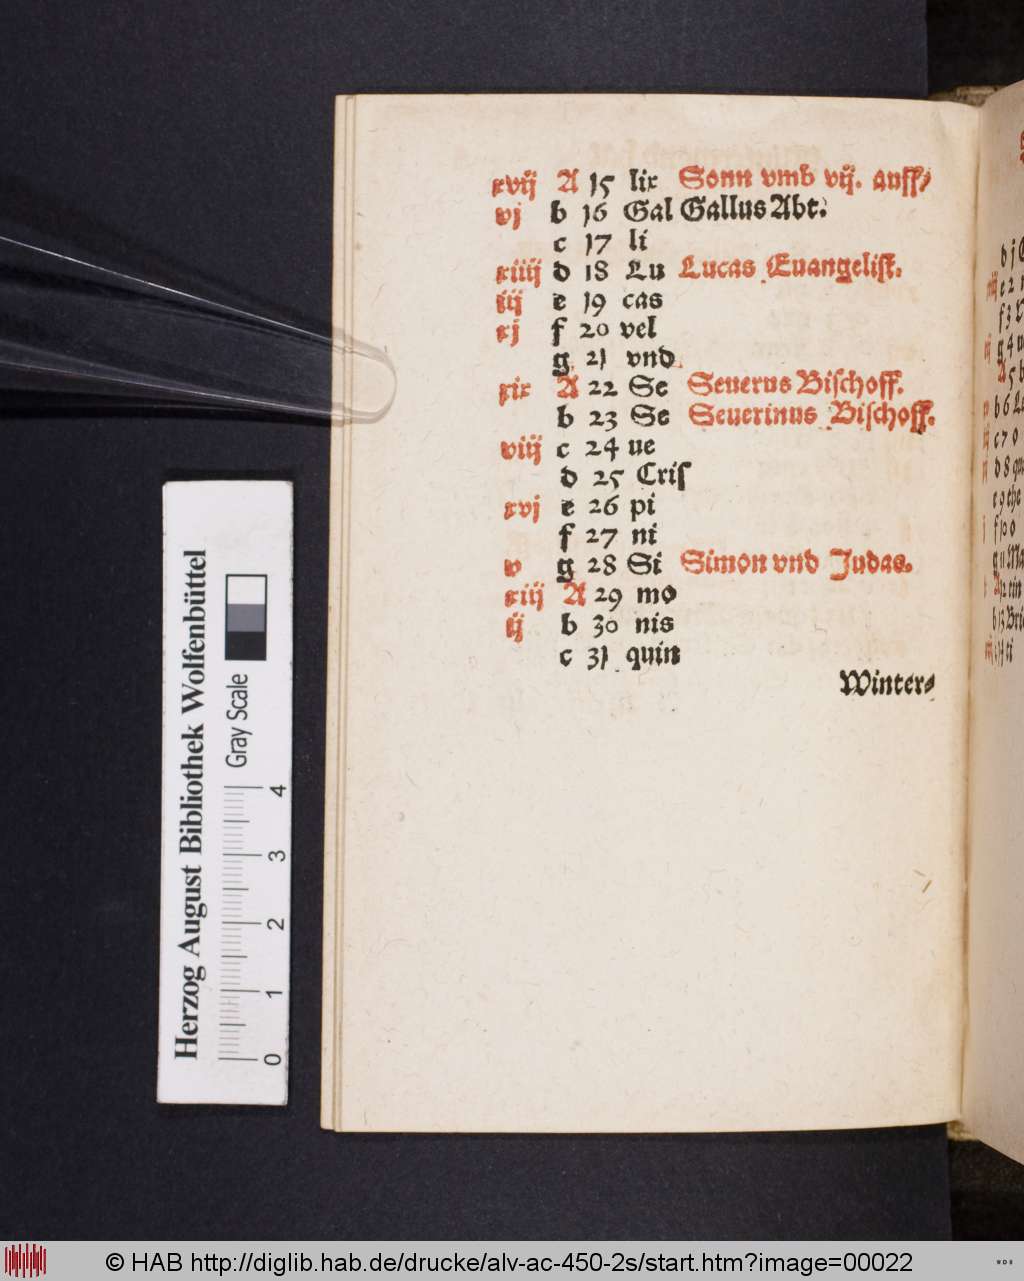 xvij A 15 lix Sonn vmb vij. auff/
vj b 16 Gal Gallus Abt.
c 17 li
xiiij d 18 Lu Lucas Euangelist.
iij e 19 cas
xj f 20 vel
g 21 vnd
xix A 22 Se Seuerus Bischoff.
b 23 Se Seuerinus Bischoff.
viij c 24 ue
d 25 Cris
xvj e 26 pi
f 27 ni
v g 28 Si Simon vnd Judas.
xiij A 29 mo
ij b 30 nis
c 31 quin
Winter-
b j
e 2
f 3
g 4
A 5
b 6
c 7
d 8
e 9 the
f 10
g 11 Ma
A 12 tin
b 13 Bri
Herzog August Bibliothek Wolfenbüttel
Gray Scale
0 1 2 3 4
© HAB http://diglib.hab.de/drucke/alv-ac-450-2s/start.htm?image=00022